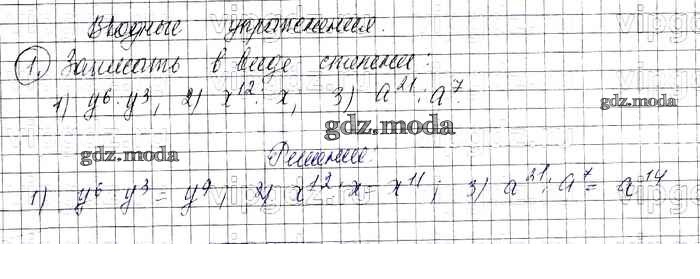 Вводные упражнения.
1. Записать в виде степени:
1) y⁶·y³, 2) x¹²:x, 3) a²¹:a⁷.
gdz.moda
gdz.moda
gdz.moda
Решение.
1) y⁶·y³=y⁹; 2) x¹²:x=x¹¹; 3) a²¹:a⁷=a¹⁴